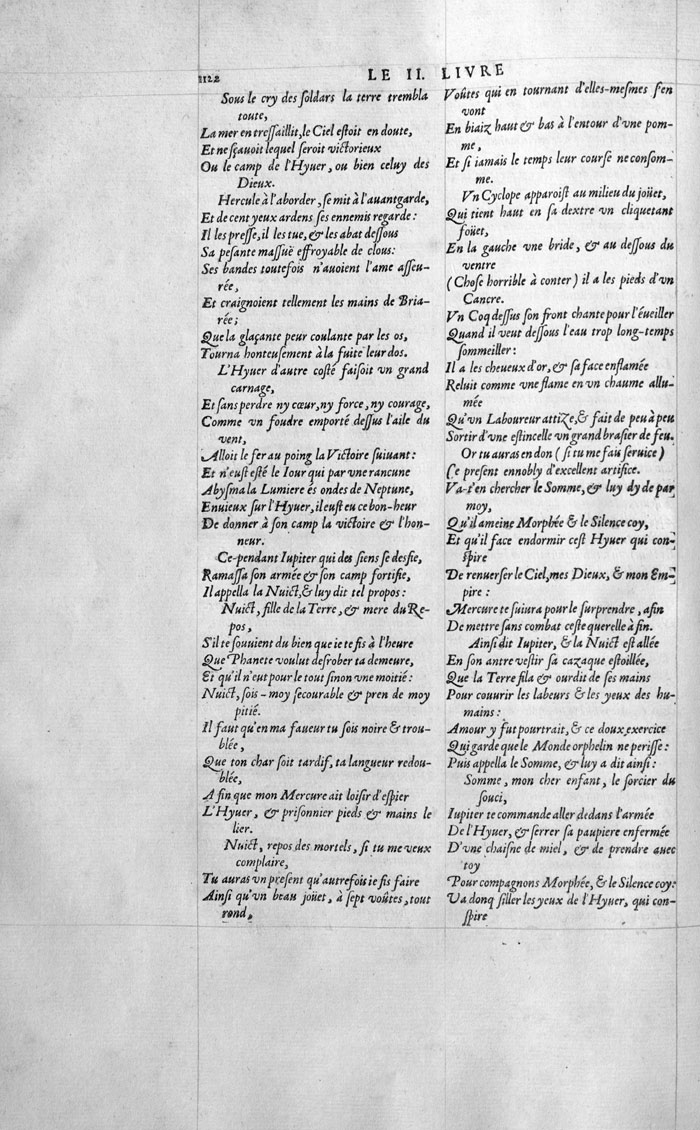 1122
LE II. LIVRE
Sous le cry des soldars la terre trembla
toute,
La mer en tressaillit, le Ciel estoit en doute,
Et ne sçauoit lequel seroit victorieux
Ou le camp de l'Hyuer, ou bien celuy des
Dieux.
Hercule à l'aborder, se mit à l'auantgarde,
Et de cent yeux ardens ses ennemis regarde:
Il les presse, il les tue, & les abat dessous
Sa pesante massuë effroyable de clous:
Ses bandes toutefois n'auoient l'ame asseu-
rée,
Et craignoient tellement les mains de Bria-
rée;
Que la glaçante peur coulante par les os,
Tourna honteusement à la fuite leur dos.
L'Hyuer d'autre costé faisoit vn grand
carnage,
Et sans perdre ny cœur, ny force, ny courage,
Comme vn foudre emporté dessus l'aile du
vent,
Alloit le fer au poing la Victoire suiuant:
Et n'eust esté le Iour qui par vne rancune
Abysma la Lumiere és ondes de Neptune,
Enuieux sur l'Hyuer, il eust eu ce bon-heur
De donner à son camp la victoire & l'hon-
neur.
Ce-pendant Iupiter qui des siens se desfie,
Ramassa son armée & son camp fortifie,
Il appella la Nuict, & luy dit tel propos:
Nuict, fille de la Terre, & mere du Re-
pos,
S'il te souuient du bien que ie te fis à l'heure
Que Phanete voulut desrober ta demeure,
Et qu'il n'eut pour le tout sinon vne moitié:
Nuict, sois-moy secourable & pren de moy
pitié.
Il faut qu'en ma faueur tu sois noire & trou-
blée,
Que ton char soit tardif, ta langueur redou-
blée,
A fin que mon Mercure ait loisir d'espier
L'Hyuer, & prisonnier pieds & mains le
lier.
Nuict, repos des mortels, si tu me veux
complaire,
Tu auras vn present qu'autrefois ie fis faire
Ainsi qu'vn beau joüet, à sept voûtes, tout
rond,
Voûtes qui en tournant d'elles-mesmes s'en
vont
En biaiz haut & bas à l'entour d'vne pom-
me,
Et si iamais le temps leur course ne consom-
me.
Vn Cyclope apparoist au milieu du joüet,
Qui tient haut en sa dextre vn cliquetant
foüet,
En la gauche vne bride, & au dessous du
ventre
(Chose horrible à conter) il a les pieds d'vn
Cancre.
Vn Coq dessus son front chante pour l'éueiller
Quand il veut dessous l'eau trop long-temps
sommeiller:
Il a les cheueux d'or, & sa face enflamée
Reluit comme vne flame en vn chaume allu-
mée
Qu'vn Laboureur attize, & fait de peu à peu
Sortir d'vne estincelle vn grand brasier de feu.
Or tu auras en don (si tu me fais seruice)
Ce present ennobly d'excellent artifice.
Va-t'en chercher le Somme, & luy dy de par
moy,
Qu'il ameine Morphée & le Silence coy,
Et qu'il face endormir cest Hyuer qui con-
spire
De renuerser le Ciel, mes Dieux, & mon Em-
pire:
Mercure te suiura pour le surprendre, afin
De mettre sans combat ceste querelle à fin.
Ainsi dit Iupiter, & la Nuict est allée
En son antre vestir sa cazaque estoillée,
Que la Terre fila & ourdit de ses mains
Pour couurir les labeurs & les yeux des hu-
mains:
Amour y fut pourtrait, & ce doux exercice
Qui garde que le Monde orphelin ne perisse:
Puis appella le Somme, & luy a dit ainsi:
Somme, mon cher enfant, le sorcier du
souci,
Iupiter te commande aller dedans l'armée
De l'Hyuer, & serrer sa paupiere enfermée
D'vne chaisne de miel, & de prendre auec
toy
Pour compagnons Morphée, & le Silence coy:
Va donq siller les yeux de l'Hyuer, qui con-
spire